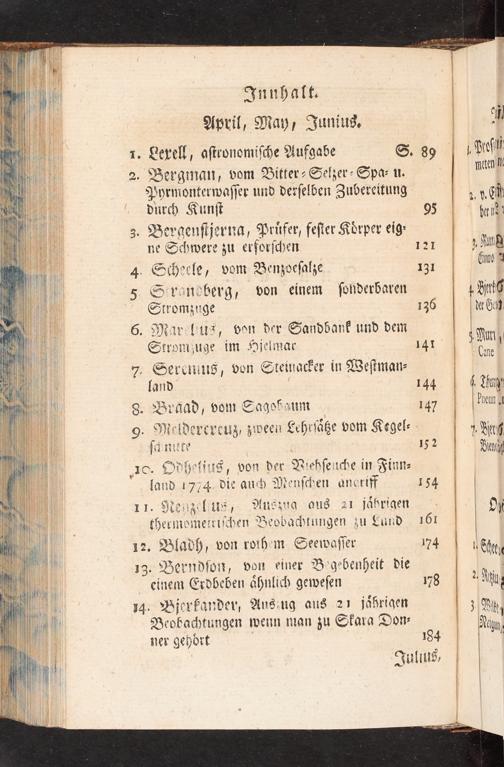 Innhalt.
April, May, Junius.
1. Lexell, astronomische Aufgabe S. 89
2. Bergman, vom Bitter- Selzer- Spa- u.
Pyrmonterwasser und derselben Zubereitung
durch Kunst 95
3. Bergenstjerna, Prüfer, fester Körper eig-
ne Schwere zu erforschen 121
4. Scheele, vom Benzoesalze 131
5 Strandberg, von einem sonderbaren
Stromzuge 136
6. von der Sandbank und dem
Stromzuge im Hielmar 141
7. Serenius, von Steinacker in Westman-
land 144
8. Braad, vom Sagobaum 147
9. Meldercreuz, zween Lehrsätze vom Kegel-
schnitte 152
10. Odhelius, von der Viehseuche in Finn-
land 1774. die auch Menschen angriff 154
11. Auszug aus 21 jährigen
thermometrischen Beobachtungen zu Lund 161
12. Bladh, von rothem Seewasser 174
13. Berndson, von einer Begebenheit die
einem Erdbeben ähnlich gewesen 178
14. Bjerkander, Auszug aus 21 jährigen
Beobachtungen wenn man zu Skara Don-
ner gehört 184
Julius,